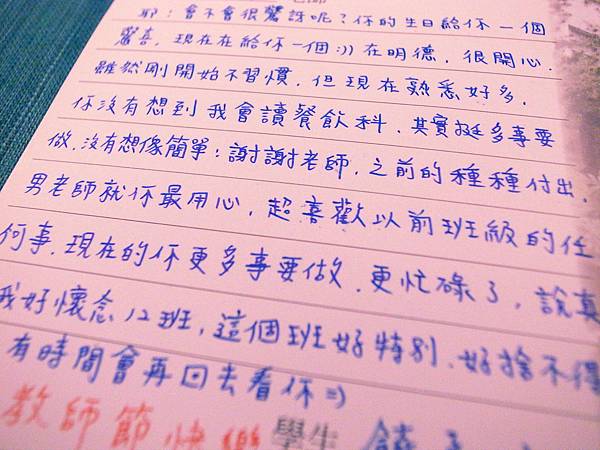 老師
耶：會不會很驚訝呢？你的生日給你一個
驚喜，現在在給你一個:))在明德，很開心．
雖然剛開始不習慣，但現在熟悉好多，
你沒有想到我會讀餐飲科．其實挺多事要
做，沒有想像簡單：謝謝老師，之前的種種付出，
男老師就你最用心，超喜歡以前班級的任
何事．現在的你更多事要做．更忙碌了，說真
我好懷念12班，這個班好特別．好捨不得
有時間會再回去看你=)
教師節快樂 學生